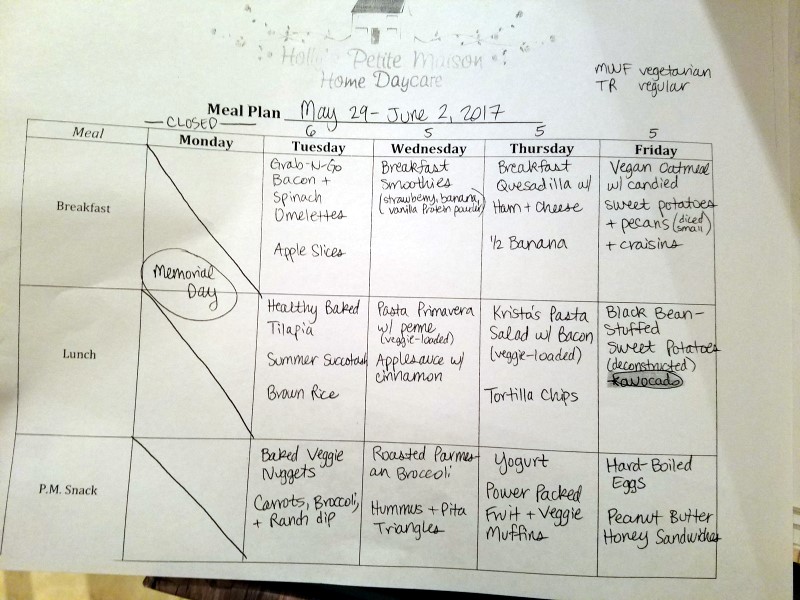 Holly's Petite Maison
Home Daycare
MWF vegetarian
TR regular
Meal Plan May 29 - June 2, 2017
— CLOSED —
6 5 5 5
Meal Monday Tuesday Wednesday Thursday Friday
Breakfast
Grab-N-Go
Bacon +
Spinach
Omelettes
Apple Slices
Breakfast
Smoothies
(strawberry, banana,
vanilla Protein powder)
Breakfast
Quesadilla w/
Ham + Cheese
1/2 Banana
Vegan Oatmeal
w/ candied
sweet potatoes
+ pecans (diced small)
+ craisins
Memorial
Day
Lunch
Healthy Baked
Tilapia
Summer Succotash
Brown Rice
Pasta Primavera
w/ penne
(veggie-loaded)
Applesauce w/
cinnamon
Krista's Pasta
Salad w/ Bacon
(veggie-loaded)
Tortilla Chips
Black Bean-
Stuffed
Sweet Potatoes
(deconstructed)
+ avocado
P.M. Snack
Baked Veggie
Nuggets
Carrots, Broccoli,
+ Ranch dip
Roasted Parmes-
an Broccoli
Hummus + Pita
Triangles
Yogurt
Power Packed
Fruit + Veggie
Muffins
Hard-Boiled
Eggs
Peanut Butter
Honey Sandwiches